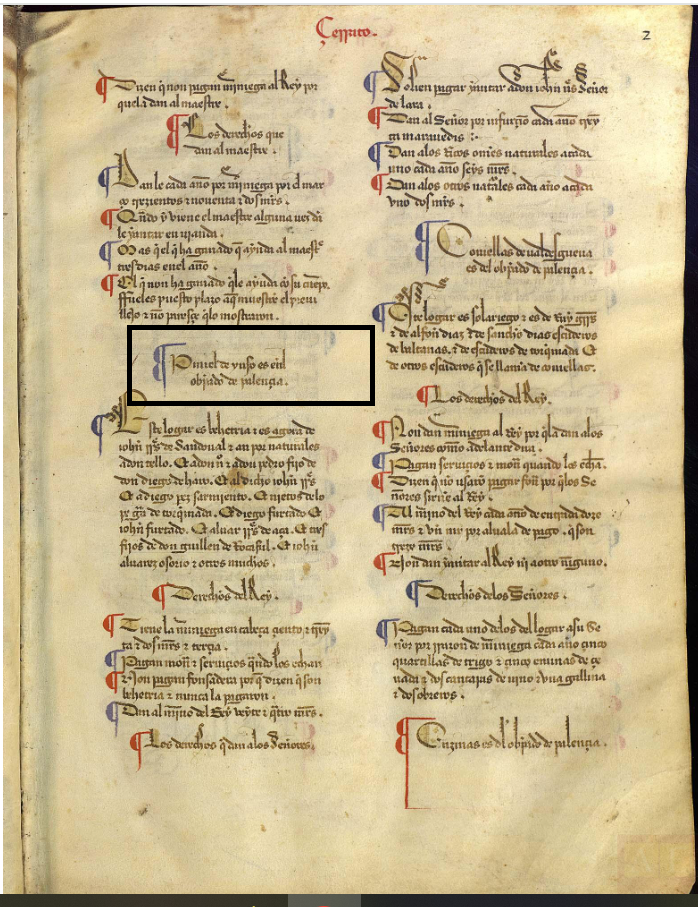 Çerrito.
2
Dizen q̃ non pagan miniega al Rey por
quela dan al maestre.
Los derechos que
dan al maestre.
Dan le cada año por miniega por el mar
ço trezientos & nouenta & dos mr̃s.
Q̃ndo y viene el maestre alguna uez dã
le yantar en vianda.
Mas q̃l el q̃ ha ganado q̃ ayuda al maestr̃
tres dias en el año.
El q̃ non ha ganado q̃le ayuda cõ su cuerpo.
llejo & nõ paresçe q̃lo mostraron.
Piniel de yuso es enl
obp̃ado de palençia.
Este logar es behetria & es agora de
iohñ rr̃s de Sandoual & an por naturales
adon tello. Et adon nº & adon pedro fijo de
don diego de haro. Et al dicho iohñ rr̃s
Et a diego perz sarmiento. Et nietos de lo
pe gr̃a de torq̃mada. Et diego furtado Et
iohñ furtado. Et aluar rr̃s de aça. Et tres
fijos de don guillen de Rocafil. Et iohñ
aluarez osorio & otros muchos.
Derechos del Rey.
Tiene la miniega en cabeça çiento & treỹ
ta & dos mr̃s & terçia.
Pagan mon̄ & seruiçios q̃ndo los echan
Non pagan fonsadera por q̃ dizen q̃ son
behetria & nunca la pagaron.
Dan al mĩno del Rey veynte & q̃tro mr̃s.
Los derechos q̃ dan alos Señores.
Solien pagar yantar adon iohñ nũs Señor
de lara.
Dan al Señor por infurçio cada año treỹ
ta maravedis :.
Dan alos Ricos omes naturales acada
uno cada año seys mr̃s.
Dan alos otros nat̃ales cada año acada
vno dos mr̃s.
Couiellas de ual desgueua
es del obp̃ado de palençia.
Este logar es solariego & es de Ruy
& de alfon diaz & de sancho dias escuderos
de baltanas. & de escuderos de torq̃mada Et
de otros escuderos q̃ se llamã de couiellas.
Los derechos del Rey.
Non dan miniega al Rey por q̃la dan alos
Señores como adelante dira.
Pagan seruiçios & mon̄ quando los echã.
Dizen q̃ nõ usarõ pagar fon̄ por q̃los Se
ñores siruẽ al Rey.
Al mĩno del Rey cada año de entrada doze
mr̃s & vn mr̃ por aluala de pago. q̃ son
treze mr̃s.
Non dan yantar al Rey ni aotro ninguno.
Derechos delos Señores.
Pagan cada uno delos del logar asu Se
ñor por rrazon de miniega cada año çinco
quartillas de trigo & çinco eminas de çe
uada & dos cantaras de uino & vna gallina
& dos obreros.
Enzinas es dl obp̃ado de palençia.